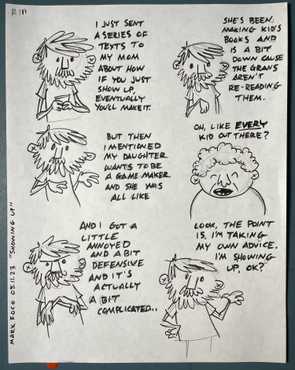 I JUST SENT
A SERIES OF
TEXTS TO
MY MOM
ABOUT HOW
IF YOU JUST
SHOW UP,
EVENTUALLY
YOU'LL MAKE IT.
SHE'S BEEN
MAKING KID'S
BOOKS AND
IS A BIT
DOWN CAUSE
THE GRANS
AREN'T
RE-READING
THEM.
BUT THEN
I MENTIONED
MY DAUGHTER
WANTS TO BE
A GAME MAKER
AND SHE WAS
ALL LIKE
OH, LIKE EVERY
KID OUT THERE?
AND I GOT A
LITTLE
ANNOYED
AND A BIT
DEFENSIVE
AND IT'S
ACTUALLY
A BIT
COMPLICATED..
LOOK, THE POINT
IS, I'M TAKING
MY OWN ADVICE.
I'M SHOWING
UP, OK?
MARK 05.11.23 "SHOWING UP"